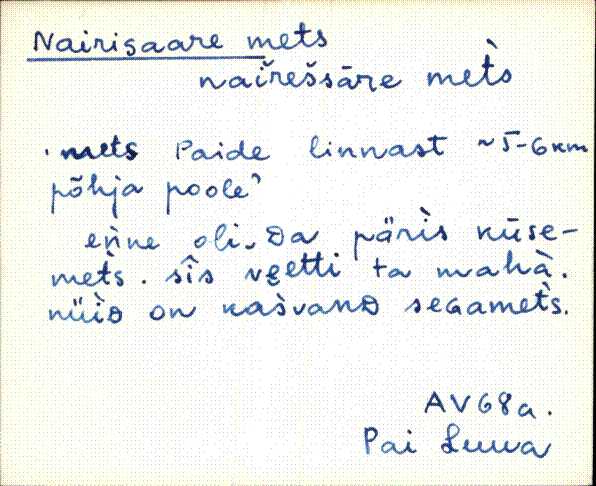 Nairisaare mets
naĭrešsāre metʼs
‘mets Paide linnast ~5-6 km
põhja poole’
eǹne oli‿Da päris kūse-
metʼs. sîs vęetti ta mahà.
nüìD on kaśvanD seGametʼs.
AV68a.
Pai Luua